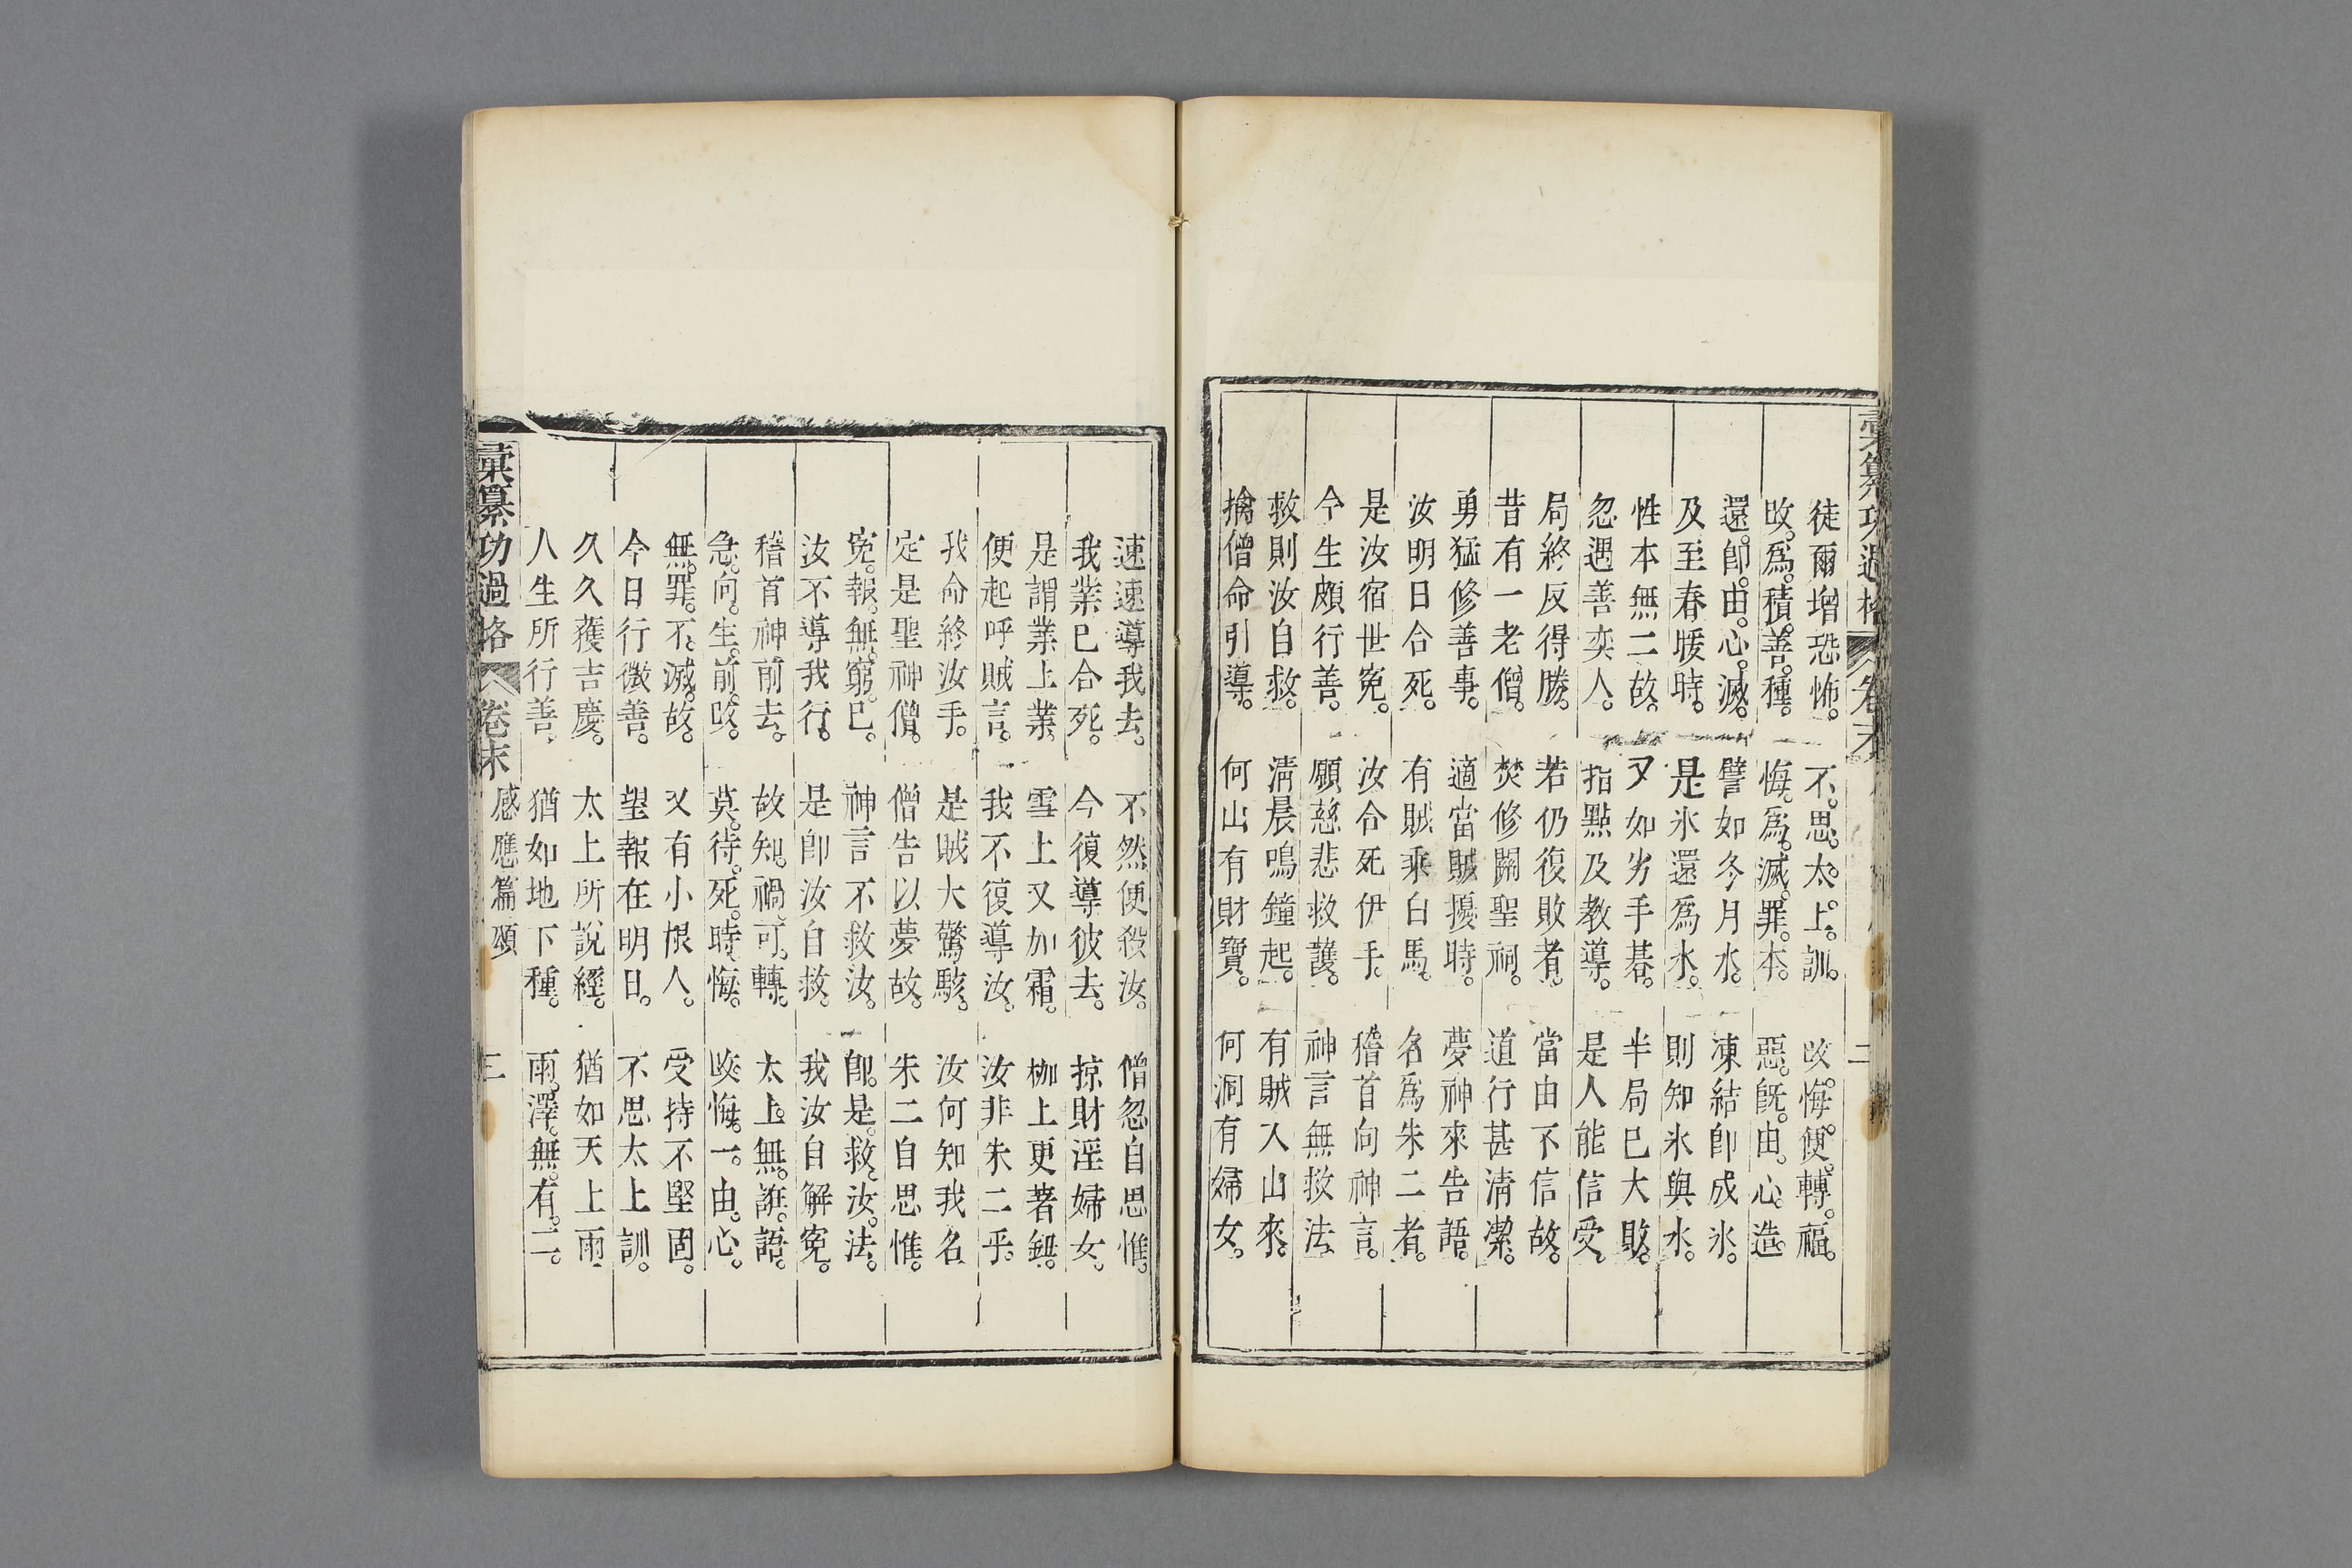 彙纂功過格 卷末 二
徒爾增恐怖。不思太上訓。改悔便轉福。
改爲積善種。悔爲滅罪本。惡旣由心造
還卽由心滅。譬如冬月水。凍結卽成氷。
及至春暖時。是氷還爲水。則知氷與水。
性本無二故。又如劣手棊。半局已大敗。
忽遇善奕人。指點及教導。是人能信受。
局終反得勝。若仍復敗者。當由不信故。
昔有一老僧。焚修關聖祠。道行甚清潔。
勇猛修善事。適當賊擾時。夢神來告語。
汝明日合死。有賊乘白馬。名爲朱二者。
是汝宿世寃。汝合死伊手。稽首向神言。
今生頗行善。願慈悲救護。神言無救法
救則汝自救。清晨鳴鐘起。有賊入山來。
擒僧命引導。何山有財寶。何洞有婦女。
速速導我去。不然便殺汝。僧忽自思惟。
我業已合死。今復導彼去。掠財淫婦女。
是謂業上業。雪上又加霜。枷上更著鈕。
便起呼賊言。我不復導汝。汝非朱二乎。
我命終汝手。是賊大驚駭。汝何知我名
定是聖神僧。僧告以夢故。朱二自思惟。
寃報無窮已。神言不救汝。卽是救汝法。
汝不導我行。是卽汝自救。我汝自解寃。
稽首神前去。故知禍可轉。太上無誑語。
急向生前改。莫待死時悔。改悔一由心。
無罪不滅故。又有小根人。受持不堅固。
今日行微善。望報在明日。不思太上訓。
久久獲吉慶。太上所說經。猶如天上雨
人生所行善。猶如地下種。雨澤無有二。
彙纂功過格 卷末 感應篇頌 三